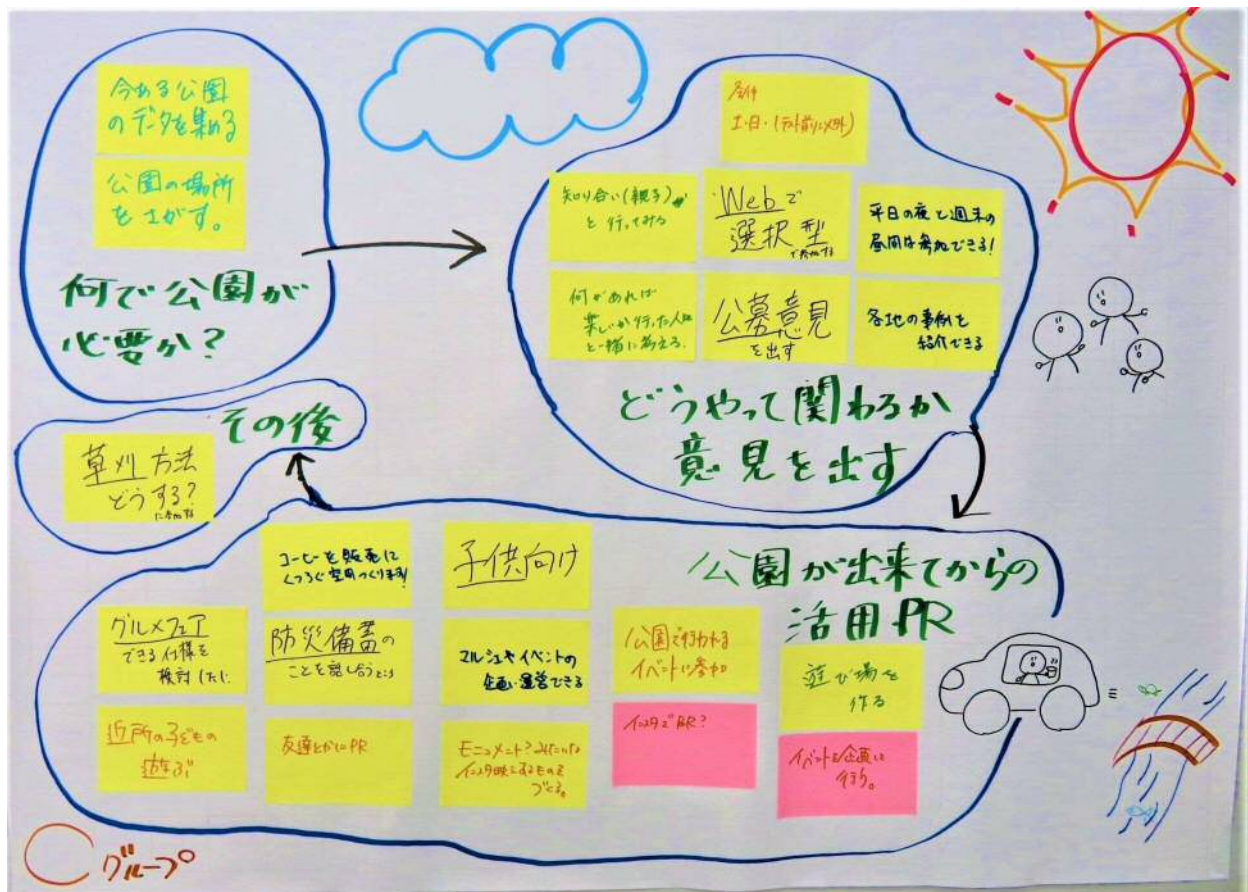 今ある公園
のデータを集める
公園の場所
をさがす。
何で公園が
必要か?
土・日・(テスト前以外)
知り合い(親子)
と行ってみる
Webで
選択型
で参加する
平日の夜と週末の
昼間は参加できる!
何があれば
楽しか行った人と
一緒に考える。
公募意見
を出す
各地の事例を
紹介できる
どうやって関わるか
意見を出す
その後
草刈方法
どうする?
に参加する
公園が出来てからの
活用PR
コーヒーを販売し
くつろぐ空間つくります!
子供向け
グルメフェア
できる仕様を
検討したい
防災備蓄の
ことを話し合うとき
マルシェやイベントの
企画・運営できる
公園で行われる
イベントに参加
遊び場を
作る
近所の子どもの
遊ぶ
友達とかにPR
モニュメント?みたいな
インスタ映えするものを
つくる。
インスタでPR?
イベントを企画して
行う。
Cグループ